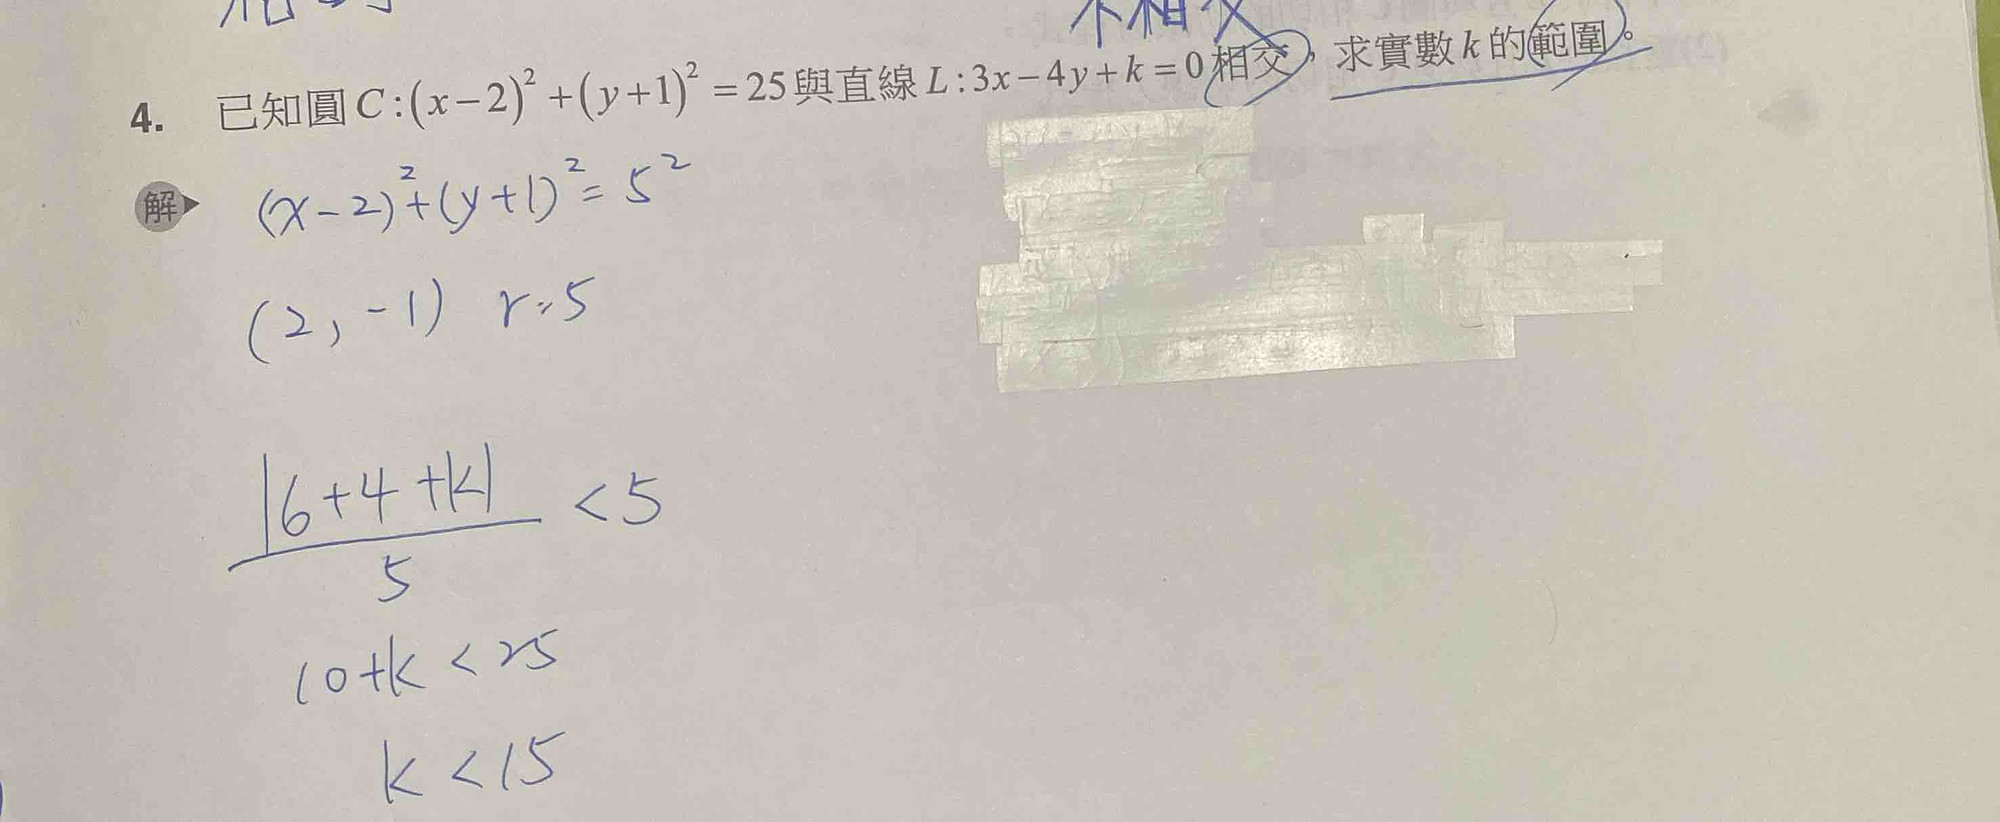 不相交
4. 已知圓 C:(x−2)²+(y+1)²=25與直線 L:3x−4y+k=0相交，求實數 k 的範圍。
解 (x−2)²+(y+1)²=5²
(2,−1) r=5
|6+4+k|
< 5
5
10+k < 25
k < 15